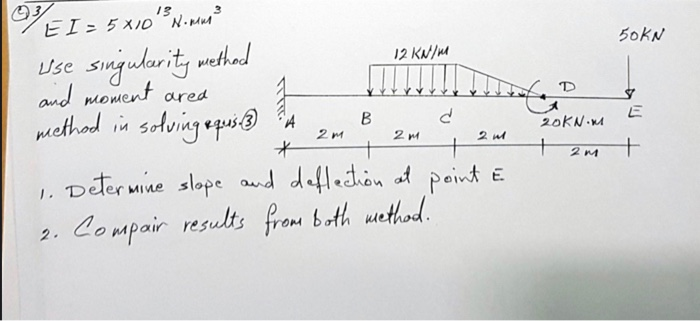 Q3/ EI = 5 x10¹³ N.mm³
Use singularity method
and moment ared
method in solving equis.③
50KN
12 KN/M
D
A B C E
20KN.M
2m 2m 2m 2m
1. Determine slope and deflection at point E
2. Compair results from both method.